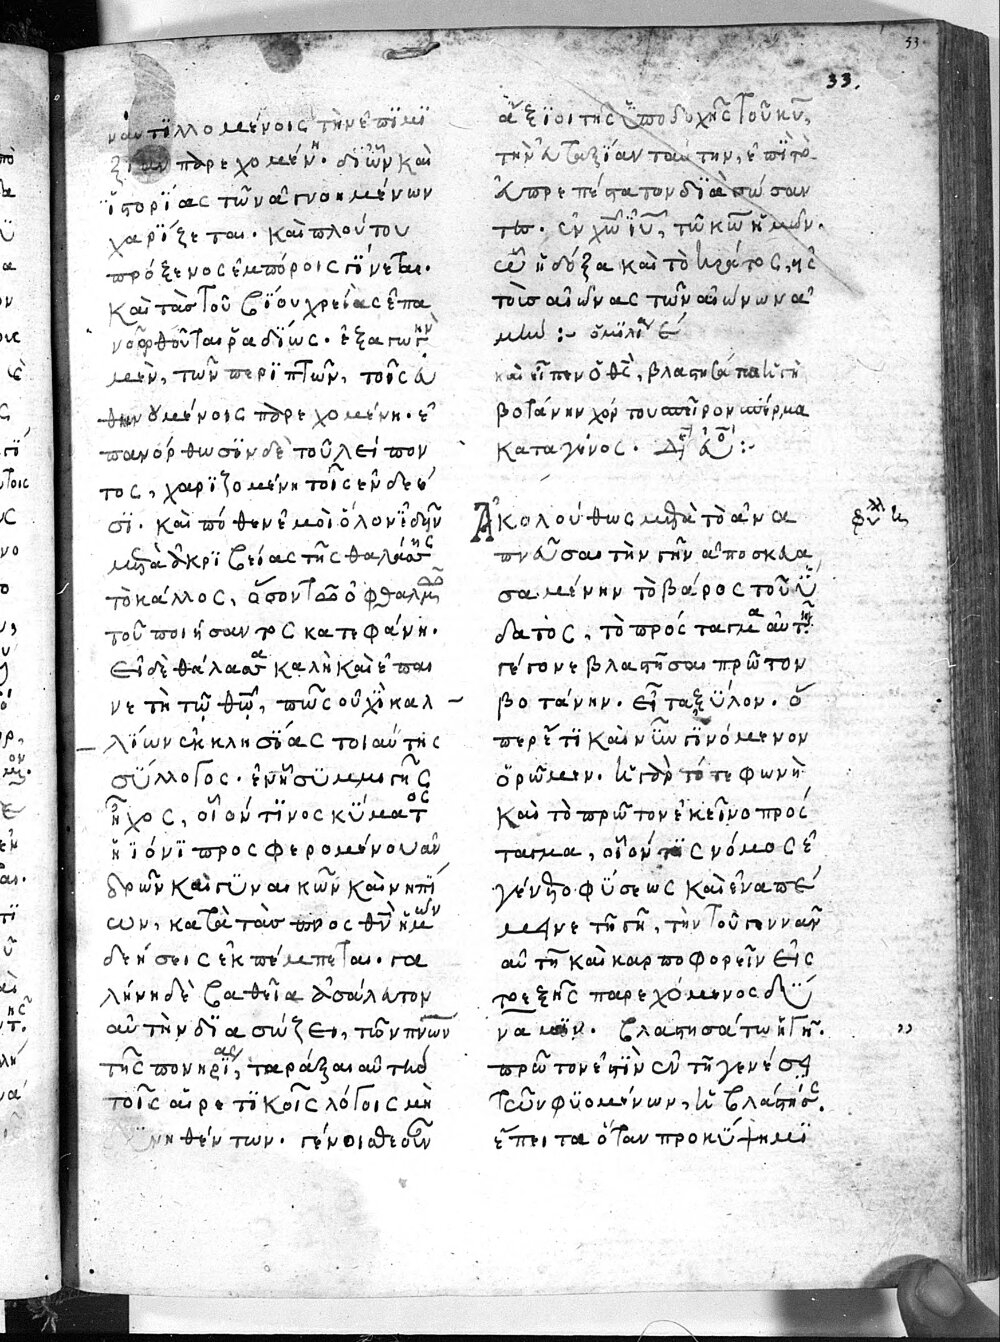 ναντιλλομένοις τὴν ἐπιμι
ξίαν παρεχομένη. δι ὧν καὶ
ἱστορίας τῶν ἀγνοημένων
χαρίζεται. καὶ πλούτου
πρόξενος ἐμπόροις γίνεται.
καὶ τὰς τοῦ βίου χρείας ἐπα
νορθοῦται ῥαδίως. ἐξαγωγὴν
μὲν, τῶν περιττῶν, τοῖς εὐ
θηνουμένοις παρεχομένη. ἐ
πανόρθωσιν δὲ τοῦ λείπον
τος, χαριζομένη τοῖς ἐνδεέ
σι. καὶ πόθεν ἐμοὶ ὅλον ἰδεῖν
μετὰ ἀκριβείας τῆς θαλάσσης
τὸ κάλλος, ὅσον τῶ ὀφθαλμῶ
τοῦ ποιήσαντος κατεφάνη.
εἰ δὲ θάλασσα καλὴ καὶ ἐπαι
νετὴ τῶ θῶ, πῶς οὐχὶ καλ
λίων ἐκκλησίας τοιαύτης
σύλλογος. ἐν ἧ συμμιγῆς
ἦχος, οἷόν τινος κύματος
ἠϊόνι προσφερομένου ἀν
δρῶν καὶ γυναικῶν καὶ νηπί
ων, κατὰ τὰς πρὸς θν ἡμῶν
δεήσεις ἐκπέμπεται. γα
λήνη δὲ βαθεῖα ἀσάλευτον
αὐτὴν διασώζει, τῶν πνῶν
τῆς πονηρίας, ταράξαι αὐτὴν
τοῖς αἱρετικοῖς λόγοις μὴ
δυνηθέντων. γένοισθε οὖν
53
33.
ἄξιοι τῆς ὑποδοχῆς τοῦ κυ,
τὴν εὐταξίαν ταύτην, ἐπὶ τὸ
εὐπρεπέστατον διασώσαν
τες. ἐν χω ιυ, τῶ κω ἡμῶν.
ὧ ἡ δόξα καὶ τὸ κράτος, εἰς
τοὺς αἰῶνας τῶν αἰώνων ἀ
μήν :- ὁμιλία ε
καὶ εἶπεν ὁ θς, βλαστησάτω ἡ γῆ
βοτάνην χόρτου σπεῖρον σπέρμα
κατα γένος.
Ἀκολούθως μετὰ τὸ ἀνα
παύσασθαι τὴν γῆν ἀποσκευα
σαμένην τὸ βάρος τοῦ ὕ
δατος, τὸ πρόσταγμα αὐτῆ
γέγονε βλαστῆσαι πρῶτον
βοτάνην. εἶτα ξύλον. ὅ
περ ἔτι καὶ νῦν γινόμενον
ὁρῶμεν. ἡ γὰρ τότε φωνὴ
καὶ τὸ πρῶτον ἐκεῖνο πρόσ
ταγμα, οἷόν τις νόμος ἐ
γένετο φύσεως καὶ ἐναπέ
μεινε τῆ γῆ, τὴν τοῦ γεννᾶν
αὐτῆ καὶ καρποφορεῖν εἰς
τὸ ἑξῆς παρεχόμενος δύ
ναμιν. βλαστησάτω ἡ γῆ.
πρῶτον ἐστὶν ἐν τῆ γενέσει
τῶν φυομένων, ἡ βλάστησις.
ἔπειτα ὅταν προκύψη μι